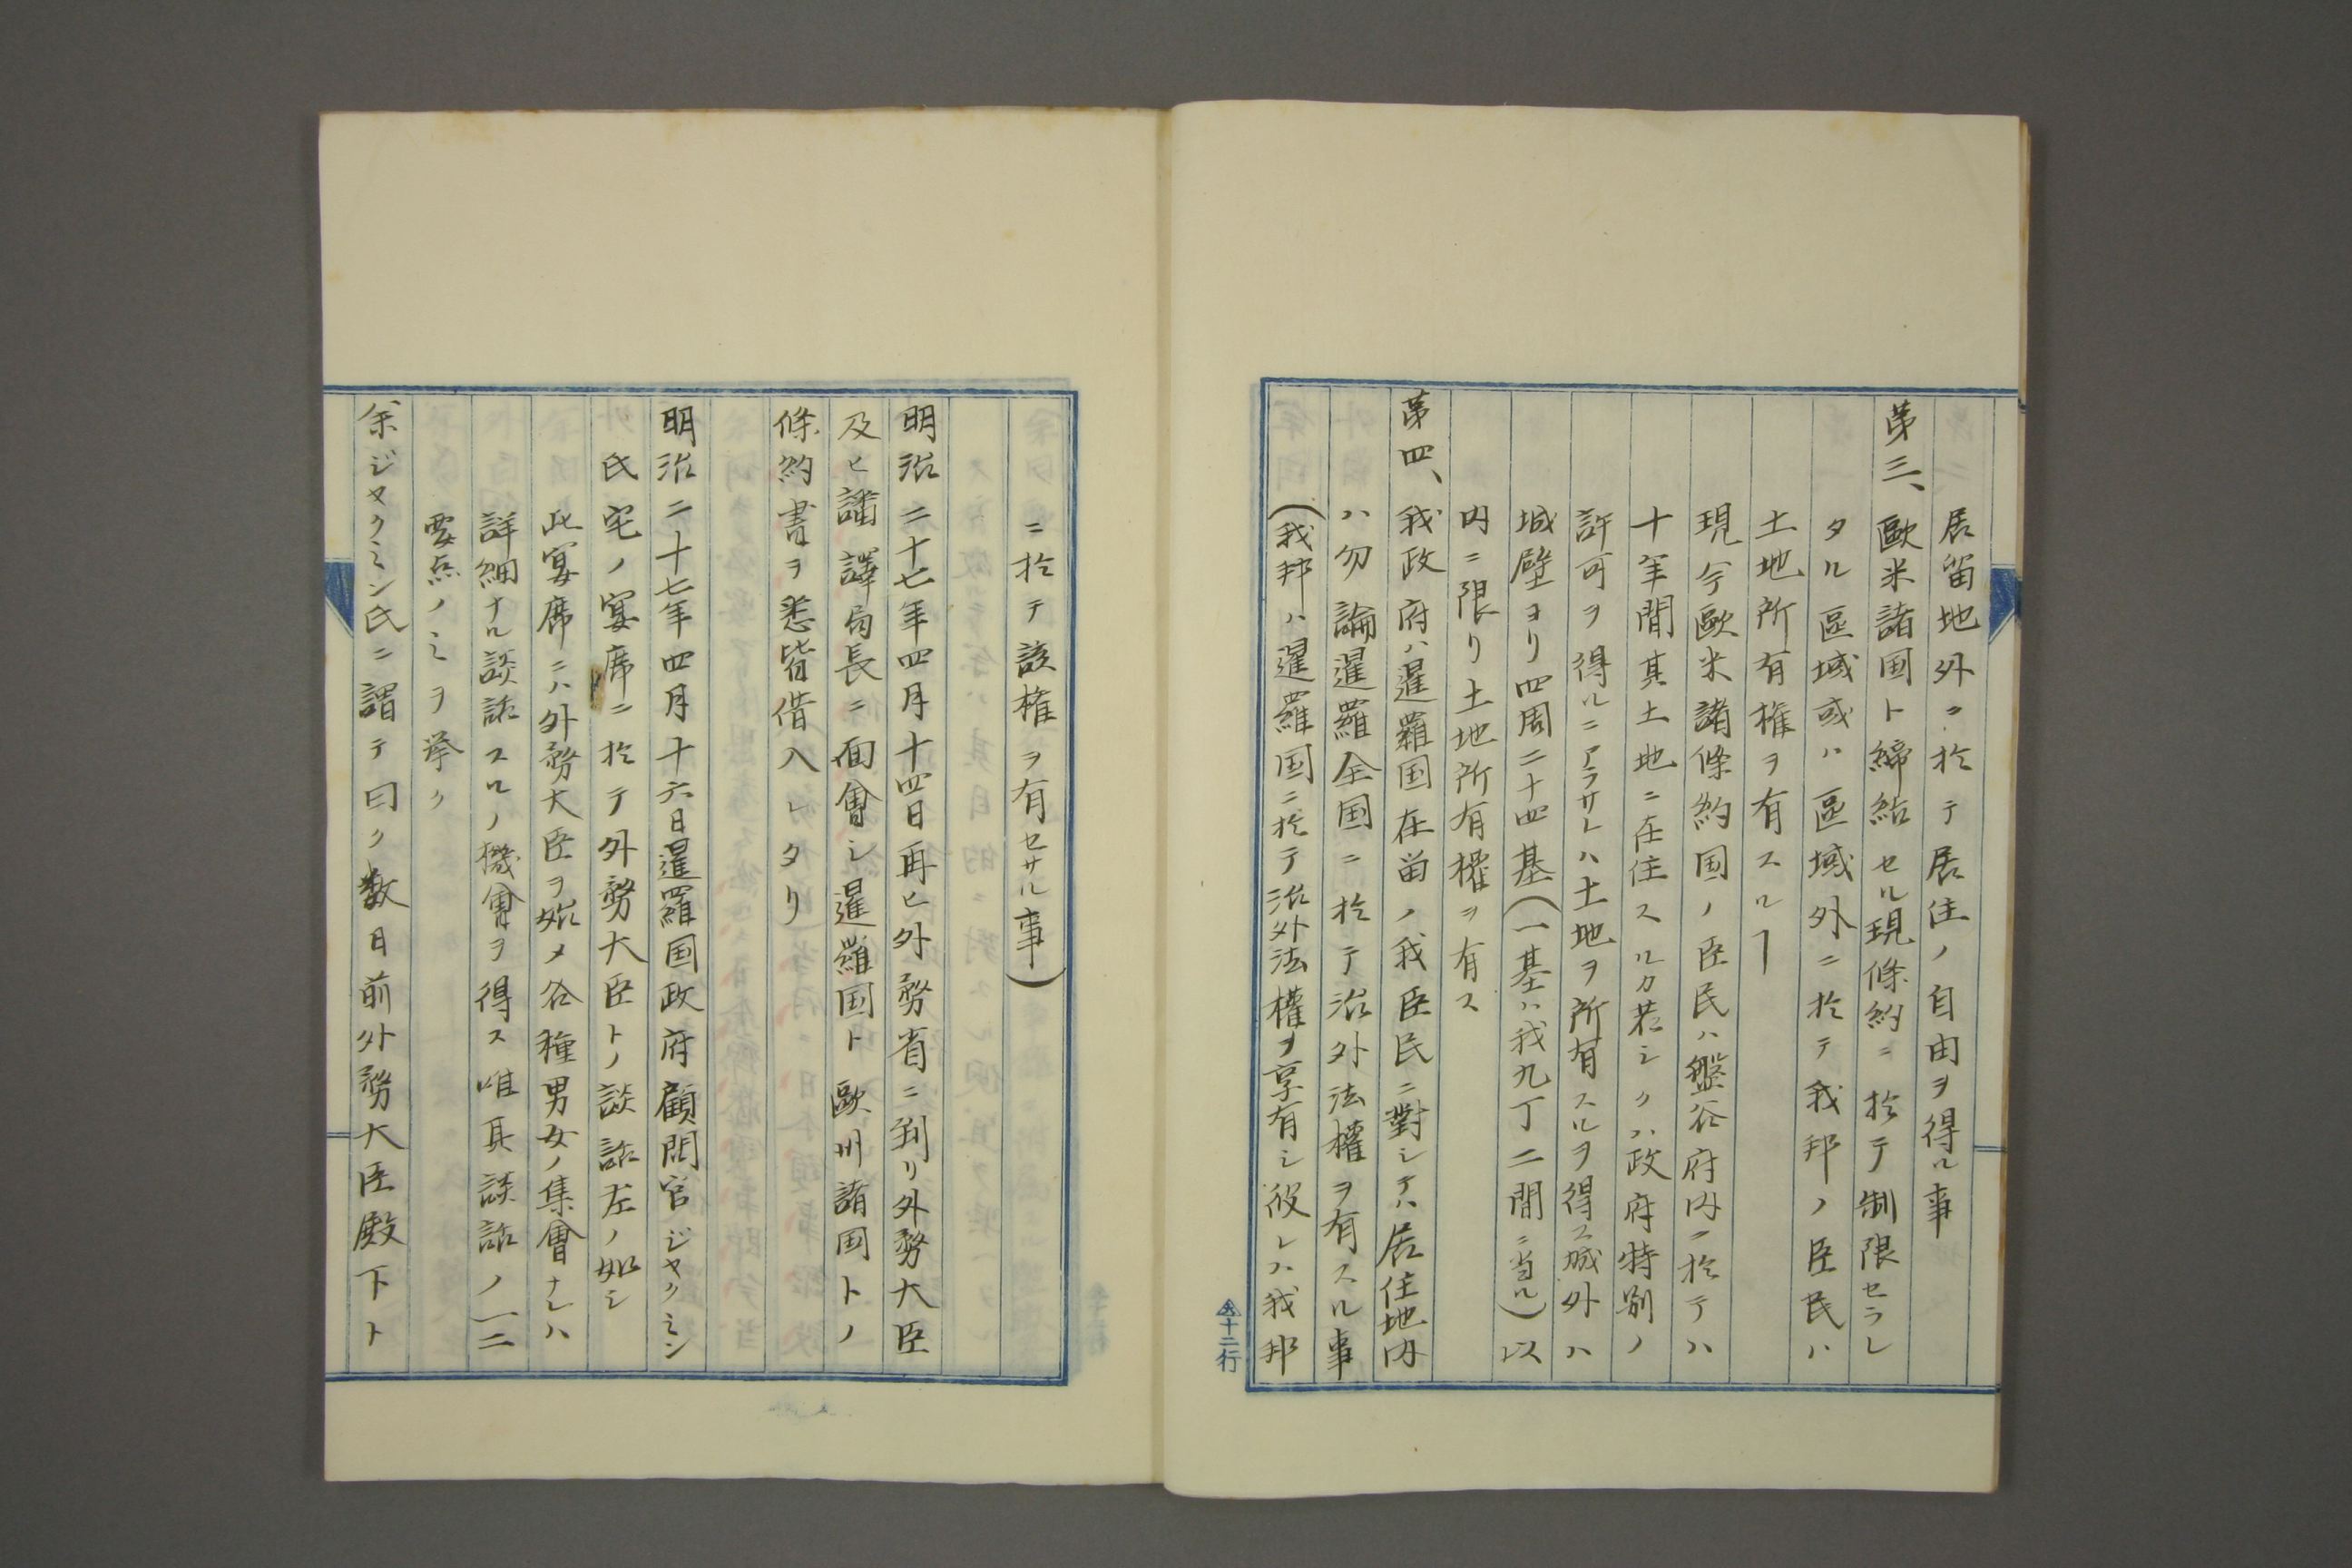 居留地外ニ於テ居住ノ自由ヲ得ル事
第三、歐米諸国ト締結セル現條約ニ於テ制限セラレ
タル區域或ハ區域外ニ於テ我邦ノ臣民ハ
土地所有権ヲ有スルヿ
現今歐米諸條約国ノ臣民ハ盤谷府内ニ於テハ
十年間其土地ニ在住スルカ若シクハ政府特別ノ
許可ヲ得ルニアラサレハ土地ヲ所有スルヲ得ス城外ハ
城壁ヨリ四周二十四基(一基ハ我九丁二間ニ当ル)以
内ニ限リ土地所有權ヲ有ス
第四、我政府ハ暹羅国在留ノ我臣民ニ對シテハ居住地内
ハ勿論暹羅全国ニ於テ治外法權ヲ有スル事
(我邦ハ暹羅国ニ於テ治外法權ヲ享有シ彼レハ我邦
ニ於テ該権ヲ有セサル事)
明治二十七年四月十四日再ヒ外務省ニ到リ外務大臣
及ヒ譯局長ニ面會シ暹羅国ト歐州諸国トノ
條約書ヲ悉皆借入レタリ
明治二十七年四月十六日暹羅国政府顧問官ジヤクミン
氏宅ノ宴席ニ於テ外務大臣トノ談話左ノ如シ
此宴席ニハ外務大臣ヲ始メ各種男女ノ集會ナレハ
詳細ナル談話スルノ機會ヲ得ス唯其談話ノ一二
要点ノミヲ挙ク
余ジヤクミン氏ニ謂テ曰ク数日前外務大臣殿下ト
仌十二行